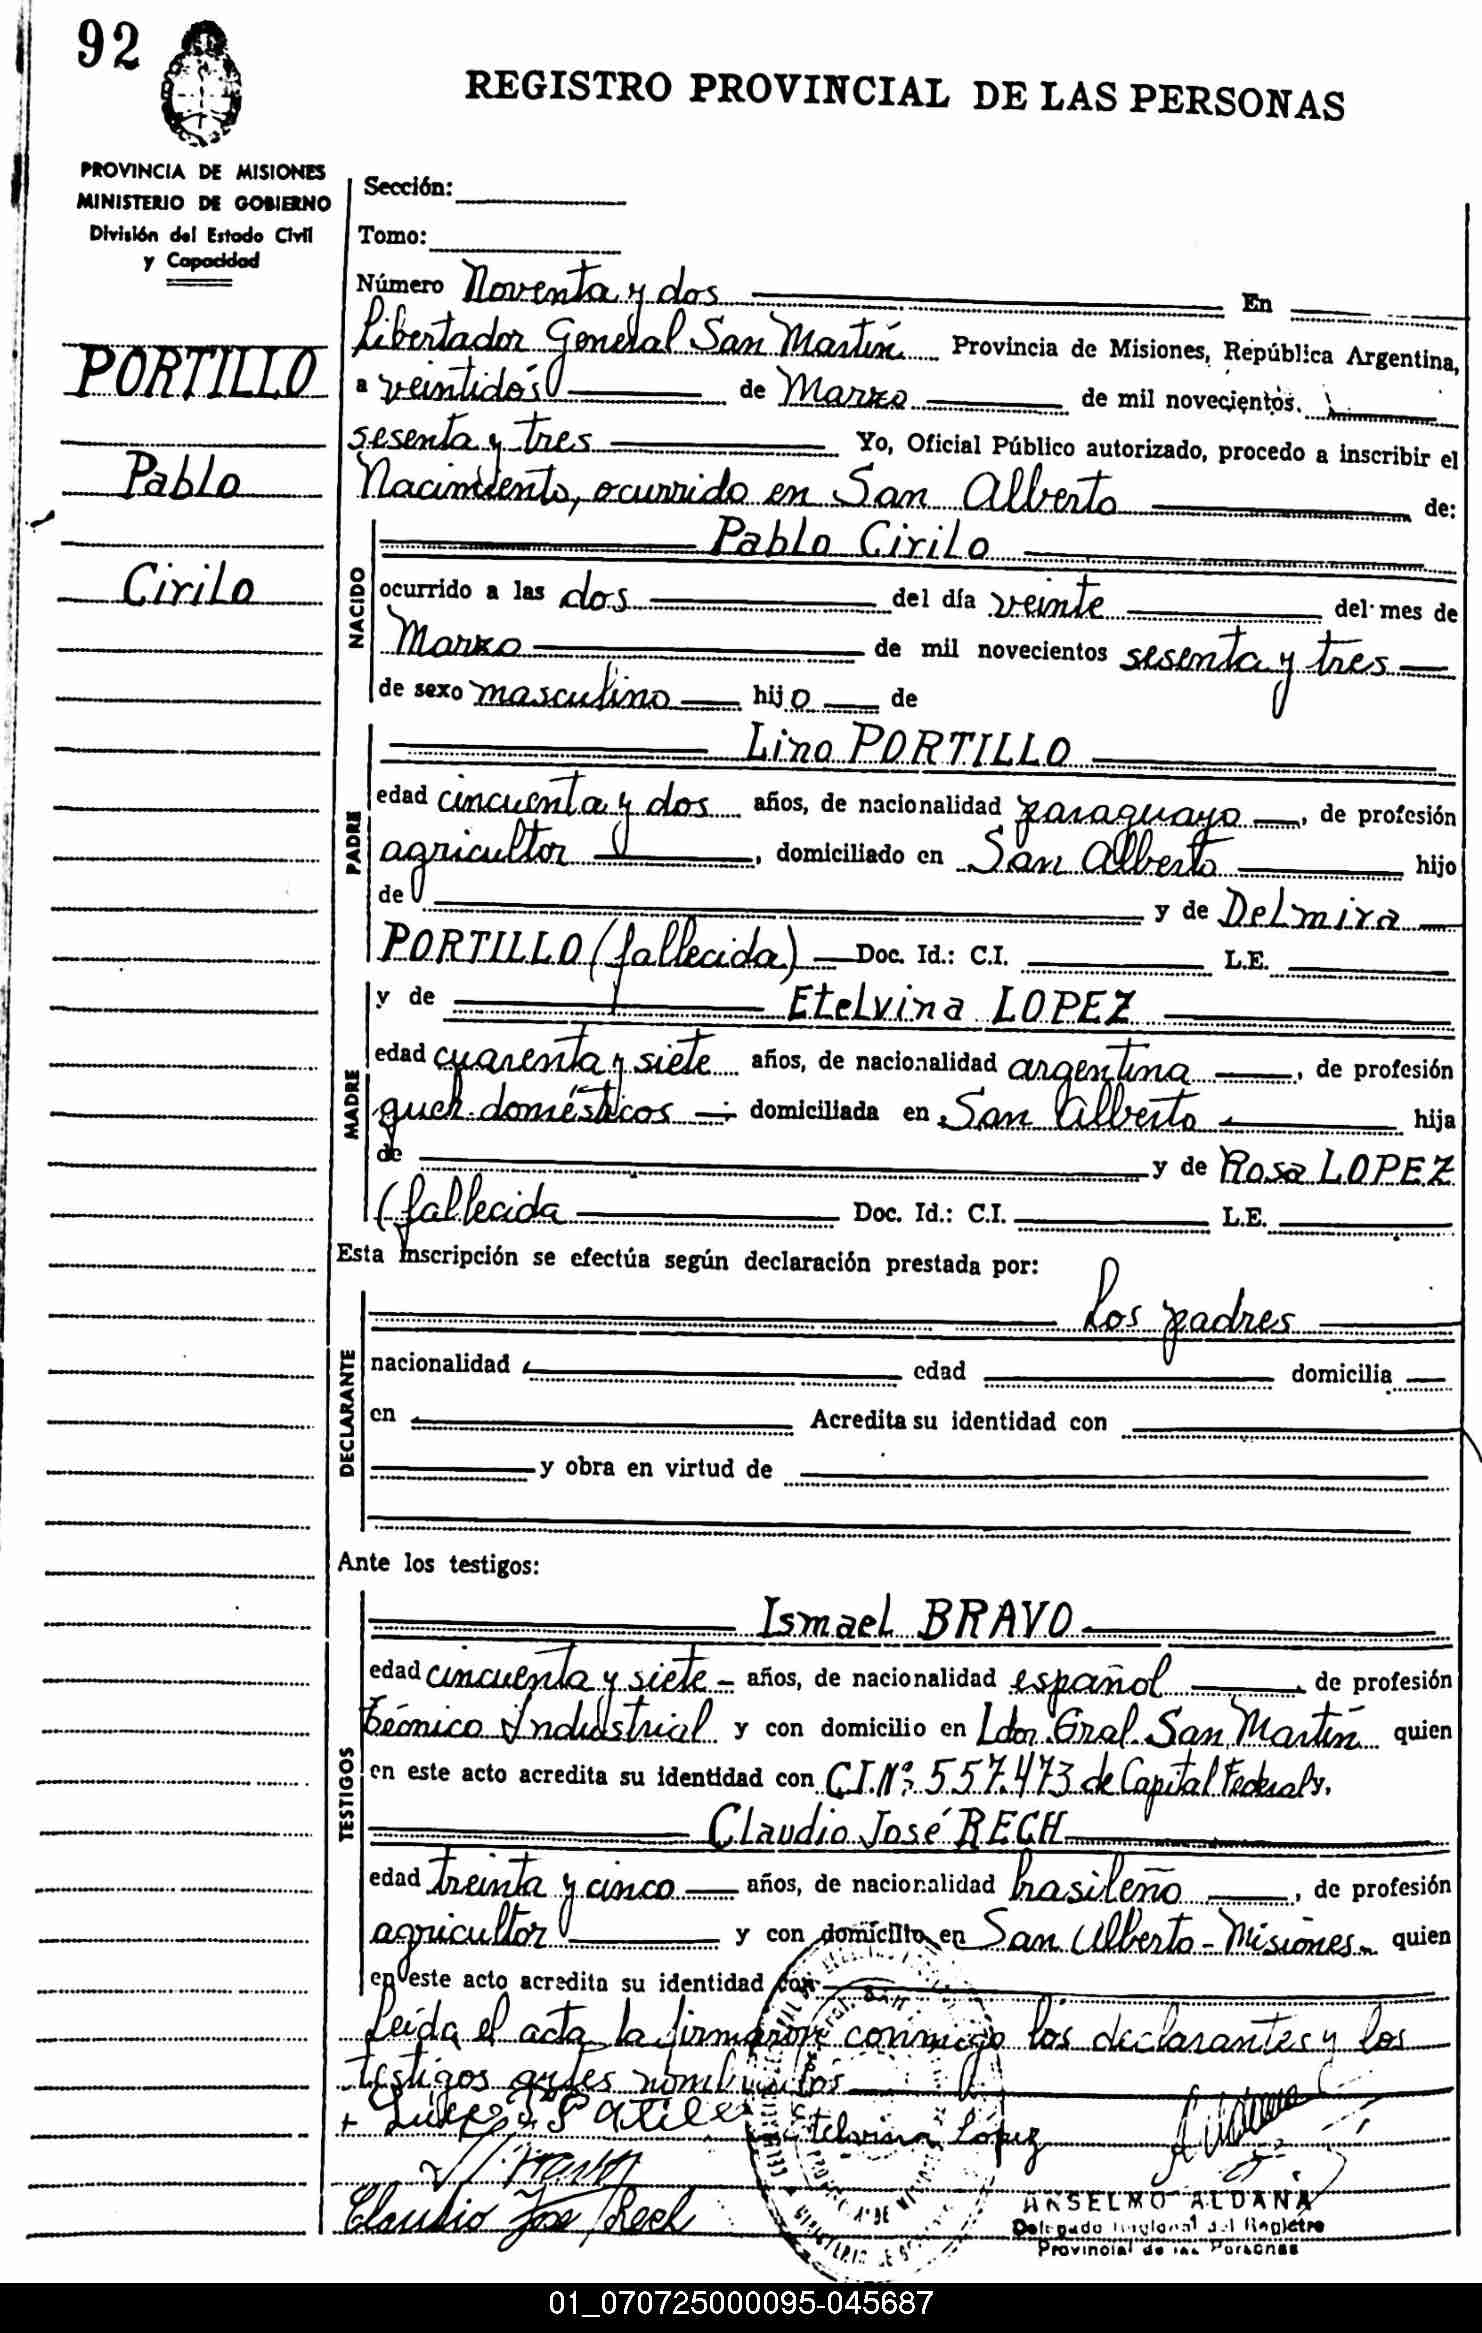 92
REGISTRO PROVINCIAL DE LAS PERSONAS
PROVINCIA DE MISIONES
MINISTERIO DE GOBIERNO
División del Estado Civil
y Capacidad
PORTILLO
Pablo
Cirilo
Sección:
Tomo:
Número Noventa y dos En
Libertador General San Martín Provincia de Misiones, República Argentina,
a veintidós de Marzo de mil novecientos
sesenta y tres Yo, Oficial Público autorizado, procedo a inscribir el
Nacimiento, ocurrido en San Alberto de:
NACIDO
Pablo Cirilo
ocurrido a las dos del día veinte del mes de
Marzo de mil novecientos sesenta y tres
de sexo masculino hijo de
PADRE
Lino PORTILLO
edad cincuenta y dos años, de nacionalidad paraguayo, de profesión
agricultor, domiciliado en San Alberto hijo
de y de Delmira
PORTILLO (fallecida) Doc. Id.: C.I. L.E.
MADRE
y de Etelvina LOPEZ
edad cuarenta y siete años, de nacionalidad argentina, de profesión
queh. domésticos domiciliada en San Alberto hija
de y de Rosa LOPEZ
(fallecida Doc. Id.: C.I. L.E.
Esta inscripción se efectúa según declaración prestada por:
DECLARANTE
Los padres
nacionalidad edad domicilia
en Acredita su identidad con
y obra en virtud de
Ante los testigos:
TESTIGOS
Ismael BRAVO
edad cincuenta y siete años, de nacionalidad español de profesión
técnico Industrial y con domicilio en Ldor. Gral. San Martín quien
en este acto acredita su identidad con C.I. Nº 557.473 de Capital Federal y.
Claudio José RECH
edad treinta y cinco años, de nacionalidad brasileño, de profesión
agricultor y con domicilio en San Alberto - Misiones quien
en este acto acredita su identidad con
Leída el acta la firmaron conmigo los declarantes y los
testigos antes nombrados
Etelvina Lópiz
Claudio Jose Rech
ANSELMO ALDANA
Delegado Regional del Registro
Provincial de las Personas
01_070725000095-045687